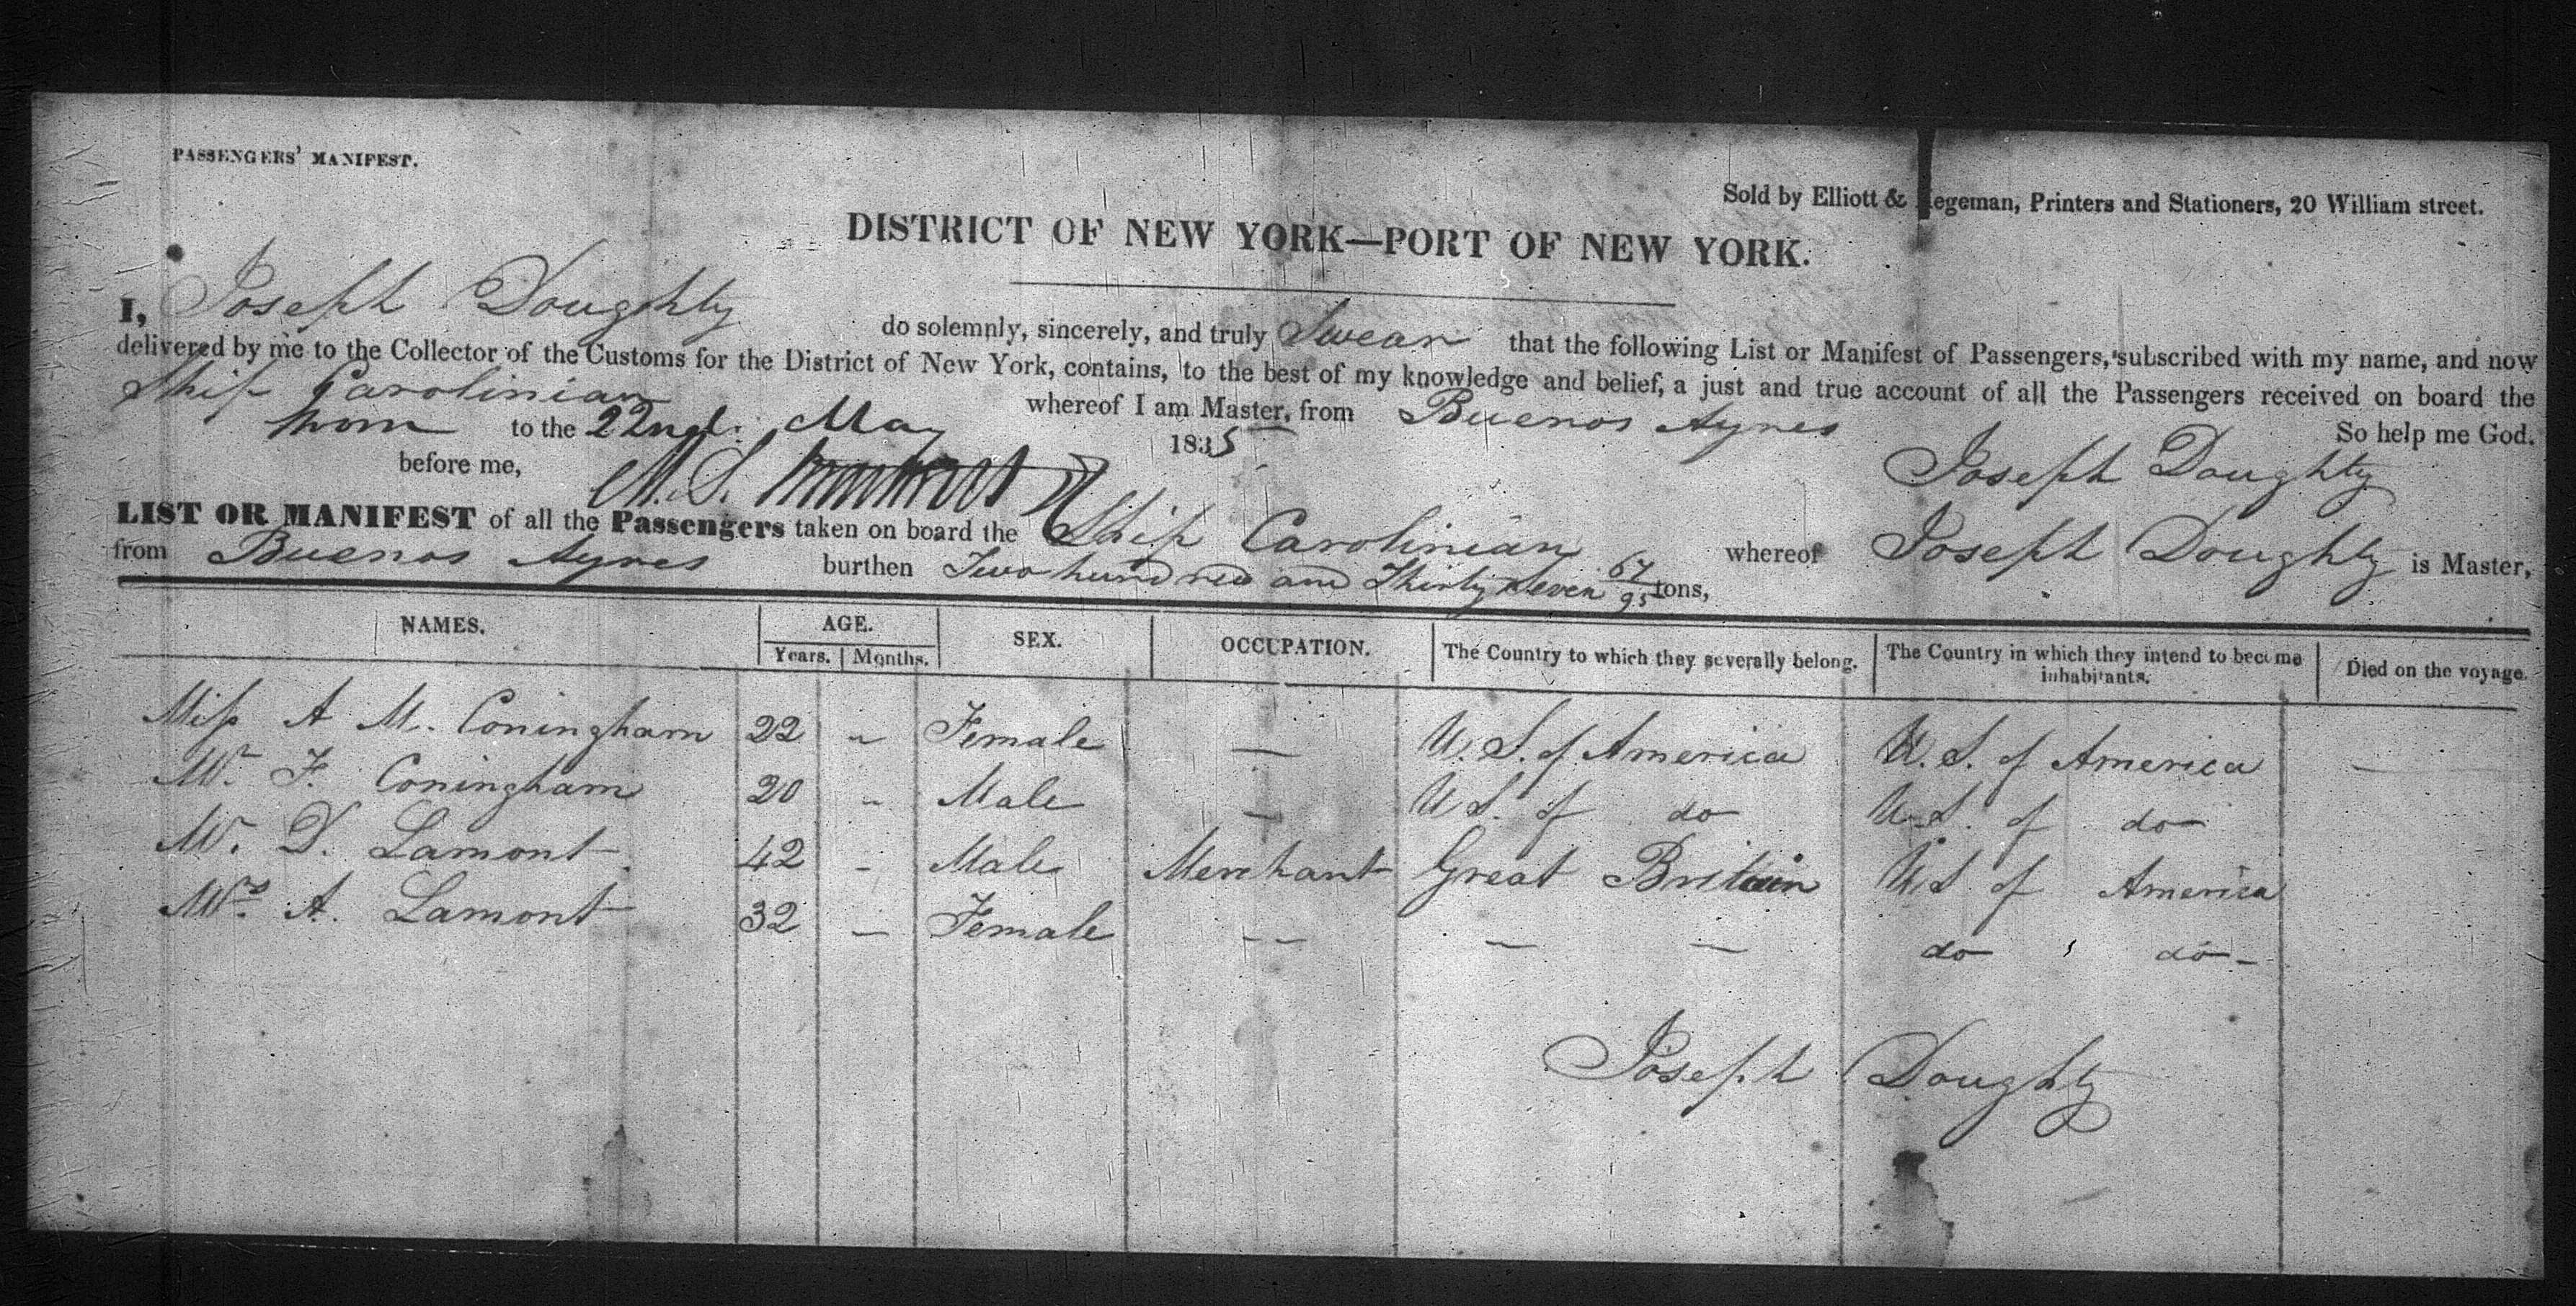 PASSENGERS' MANIFEST.
Sold by Elliott & Hegeman, Printers and Stationers, 20 William street.
DISTRICT OF NEW YORK—PORT OF NEW YORK.
I, Joseph Doughty do solemnly, sincerely, and truly Swear that the following List or Manifest of Passengers, subscribed with my name, and now
delivered by me to the Collector of the Customs for the District of New York, contains, to the best of my knowledge and belief, a just and true account of all the Passengers received on board the
Ship Carolinian whereof I am Master, from Buenos Ayres So help me God.
Sworn to the 22nd. May 1835
before me, M. S. Joseph Doughty
LIST OR MANIFEST of all the Passengers taken on board the Ship Carolinian whereof Joseph Doughty is Master,
from Buenos Ayres burthen Two hundred and Thirty Seven 67/95 tons,
NAMES. AGE. SEX. OCCUPATION. The Country to which they severally belong. The Country in which they intend to become inhabitants. Died on the voyage.
Years. Months.
Miss A M. Coningham 22 " Female — U. S. of America U. S. of America —
Mr. F. Coningham 20 " Male — U S. of do U. S. of do
Mr. D. Lamont 42 - Male Merchant Great Britain U S of America
Mrs. A. Lamont 32 — Female — — — — do do -
Joseph Doughty